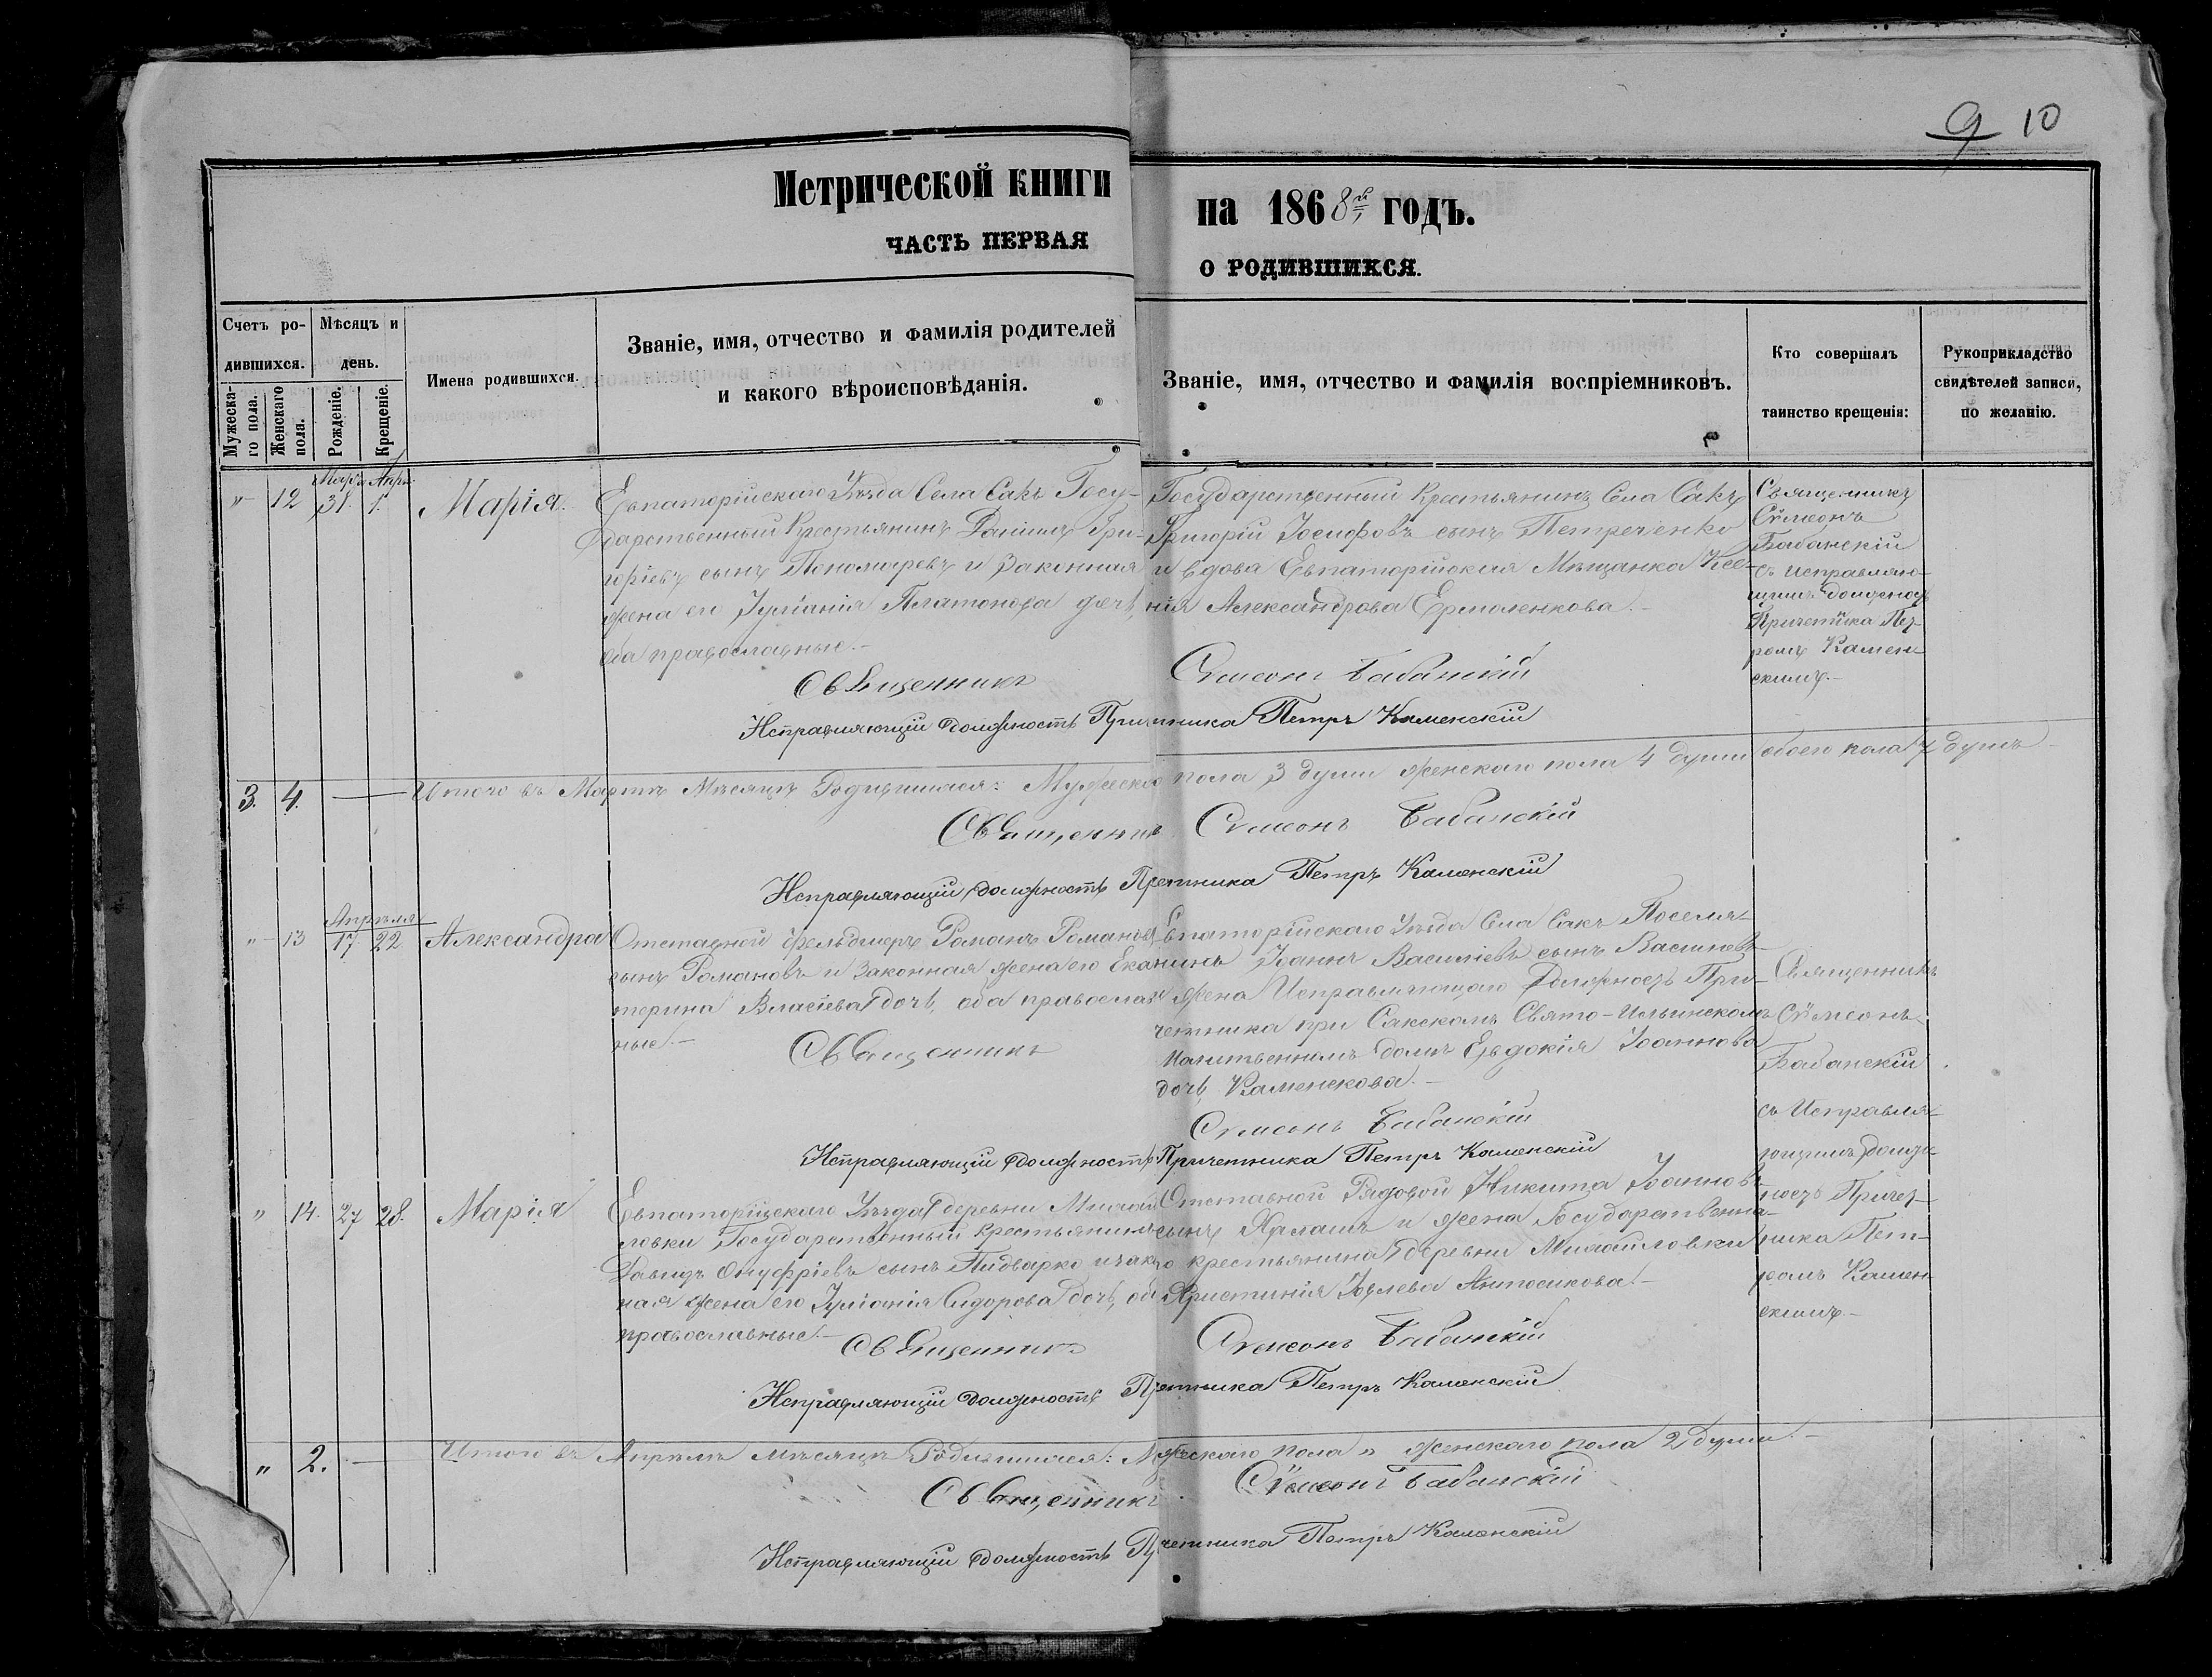 9 10
Метрической книги на 1868й годъ.
ЧАСТЬ ПЕРВАЯ О РОДИВШИХСЯ.
Счетъ родившихся.
Мужескаго пола.
Женскаго пола.
Мѣсяцъ и день.
Рожденіе.
Крещеніе.
Имена родившихся.
Званіе, имя, отчество и фамилія родителей
и какого вѣроисповѣданія.
Званіе, имя, отчество и фамилія воспріемниковъ.
Кто совершалъ
таинство крещенія:
Рукоприкладство
свидѣтелей записи,
по желанію.
Мар. Апр.
" 12 31. 1. Марія.
Евпаторійскаго Уѣзда Села Сакъ Госу-
дарственный Крестьянинъ Даніилъ Гри-
горіевъ сынъ Пономаревъ и Законная
жена его Іуліанія Платонова дочь,
оба православные.-
Государственный Крестьянинъ Села Сакъ
Григорій Іосифовъ сынъ Петреченко
и вдова Евпаторійская Мѣщанка Ксе-
нія Александрова Ермоленкова.-
Священникъ
Сѵмеонъ
Бабанскій
съ исправляю-
щимъ должность
Причетника Пет-
ромъ Камен-
скимъ.-
Священникъ Сѵмеонъ Бабанскій
Исправляющій должность Причетника Петръ Каменскій
3. 4. — Итого въ Мартѣ Мѣсяцѣ Родившихся: Мужеско пола 3 души женскаго пола 4 души обоего пола 7 душъ
Священникъ Сѵмеонъ Бабанскій
Исправляющій должность Причетника Петръ Каменскій
Апрѣля
" 13 17. 22. Александра
Отставной фельдшеръ Романъ Романовъ
сынъ Романовъ и Законная жена его Ека-
терина Власіева дочь, оба православ-
ные.-
Евпаторійскаго Уѣзда Села Сакъ Поселя-
нинъ Іоаннъ Василіевъ сынъ Василіевъ
и жена Исправляющаго Должность При-
четника при Сакскомъ Свято-Ильинскомъ
Молитвенномъ домѣ Евдокія Іоаннова
дочь Каменскова.-
Священникъ
Сѵмеонъ
Бабанскій
съ Исправля-
ющимъ долж-
ность Причет-
ника Пет-
ромъ Камен-
скимъ.-
Священникъ Сѵмеонъ Бабанскій
Исправляющій должность Причетника Петръ Каменскій
" 14. 27 28. Марія
Евпаторійскаго Уѣзда деревни Михай
ловки Государственный крестьянинъ
Давидъ Онуфріевъ сынъ Пидварко и зак
ная жена его Іуліанія Сидорова дочь, оба
православные.-
Отставной Рядовой Никита Іоанновъ
сынъ Харлашъ и жена Государственна-
го крестьянина деревни Михайловки
Христинія Іовлева Антосикова.-
Священникъ Сѵмеонъ Бабанскій
Исправляющій должность Причетника Петръ Каменскій
" 2. — Итого въ Апрѣлѣ мѣсяцѣ Родившихся: Мужескаго пола " женскаго пола 2 души.-
Священникъ Сѵмеонъ Бабанскій
Исправляющій должность Причетника Петръ Каменскій